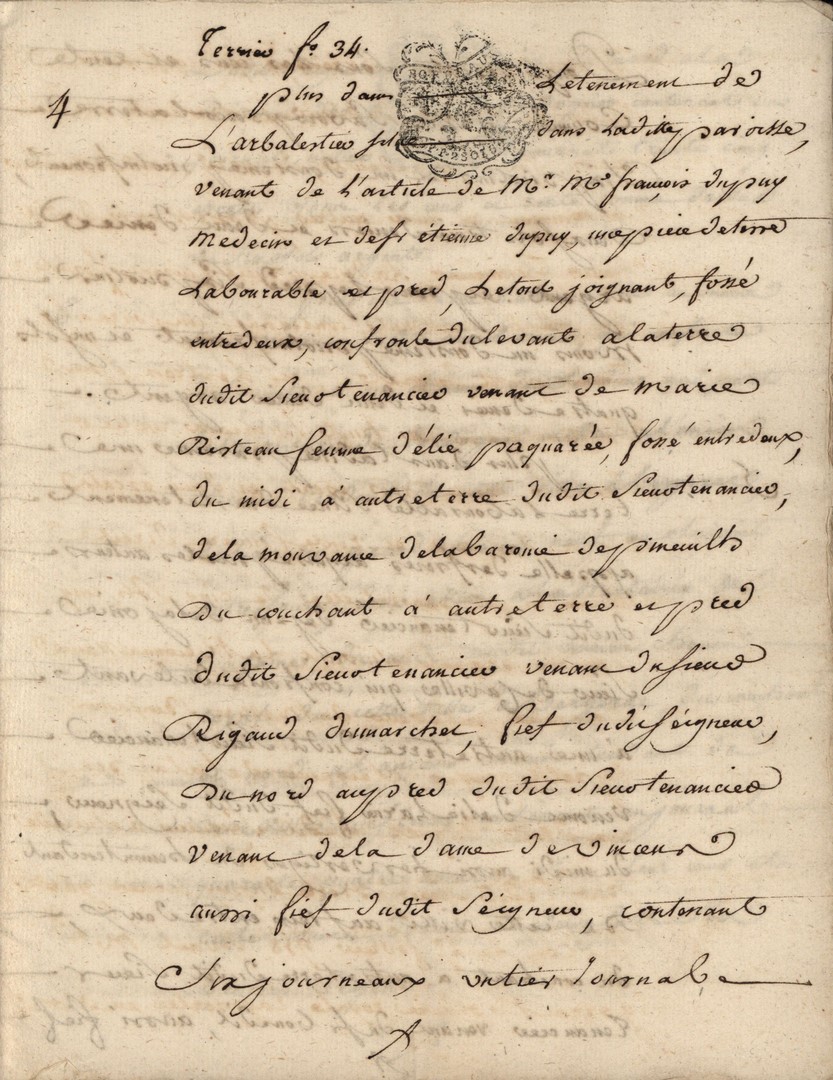 Terrier fo. 34.
4
BORDEAUX
plus dans Letenement de
L'arbalestier dans Laditte paroisse,
venant de L'article de Mr. Me françois dupuy
medecin et de fr étienne dupuy, une piece de terre
Labourable et pred, Letout joignant, fossé
entredeux, confronte du levant a la terre
dudit Sieur tenancier venant de Marie
Risteau femme d'élie paquarée, fossé entredeux,
du midi a autre terre dudit Sieur tenancier,
de la mouvance de la baronie de pineuilh
Du couchant a autre terre et pred
dudit Sieur tenancier venant du sieur
Rigaud dumarchet, fief dudit Séigneur,
Du nord au pred dudit Sieur tenancier
venant de la dame de vincens
aussi fief dudit Séigneur, contenant
Six journeaux un tiers Journal